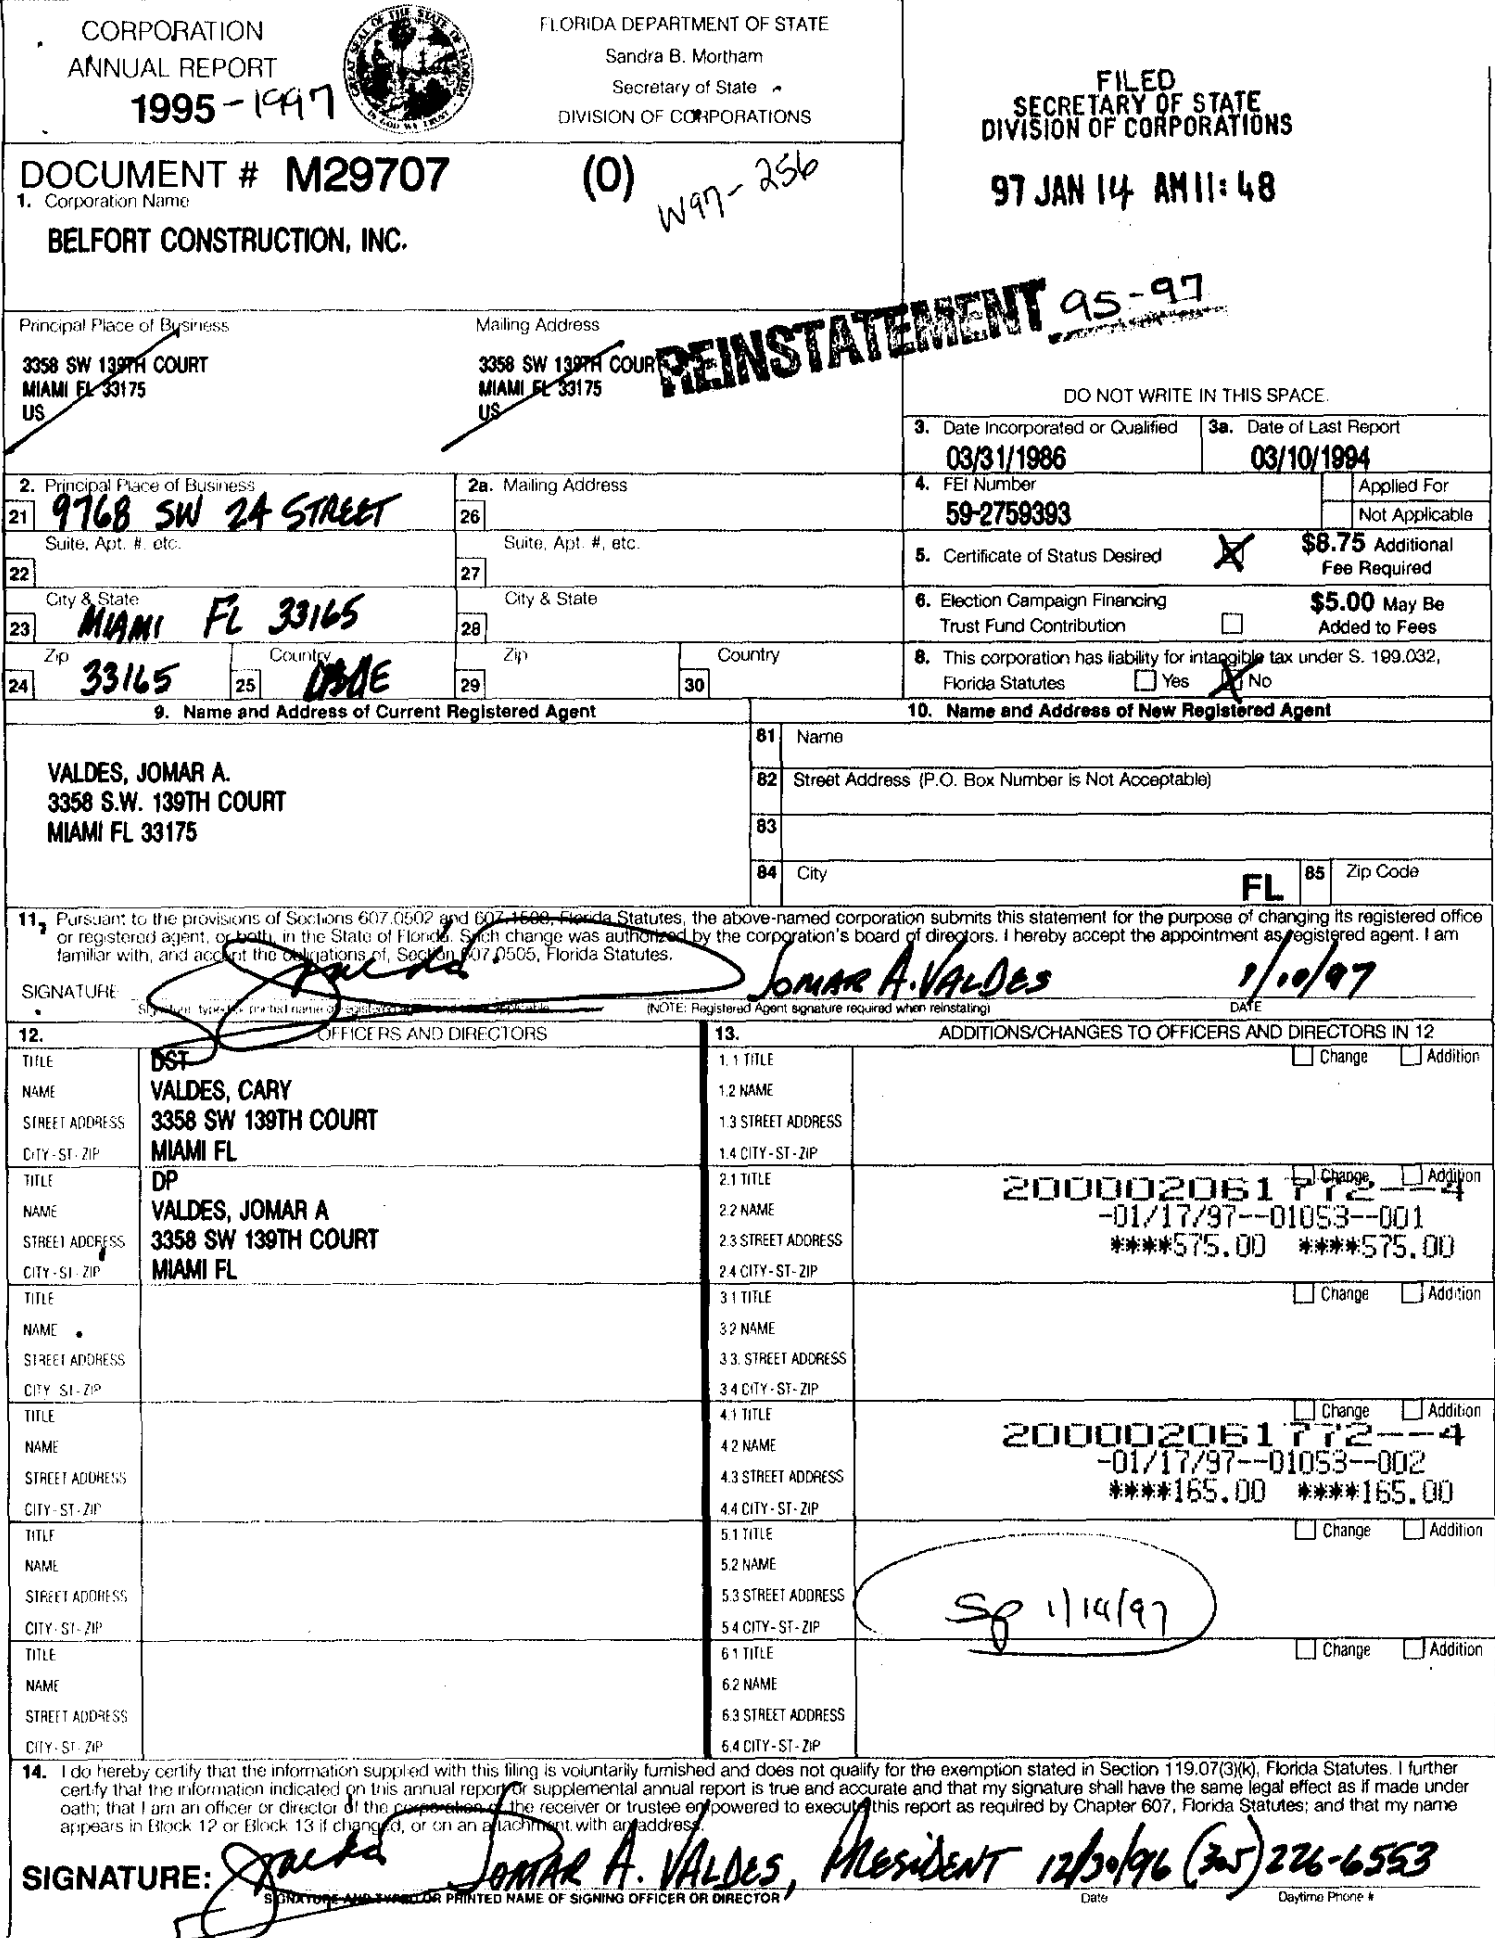 CORPORATION
ANNUAL REPORT
1995 - 1997
FLORIDA DEPARTMENT OF STATE
Sandra B. Mortham
Secretary of State
DIVISION OF CORPORATIONS
FILED
SECRETARY OF STATE
DIVISION OF CORPORATIONS
97 JAN 14 AM 11:48
DOCUMENT # M29707 (0)
W97-256
1. Corporation Name
BELFORT CONSTRUCTION, INC.
REINSTATEMENT 95-97
Principal Place of Business
3358 SW 139TH COURT
MIAMI FL 33175
US
Mailing Address
3358 SW 139TH COURT
MIAMI FL 33175
US
DO NOT WRITE IN THIS SPACE.
3. Date Incorporated or Qualified
03/31/1986
3a. Date of Last Report
03/10/1994
2. Principal Place of Business
21 9768 SW 24 STREET
Suite, Apt. #, etc.
22
City & State
23 MIAMI FL 33165
Zip
24 33165
Country
25
2a. Mailing Address
26
Suite, Apt. #, etc.
27
City & State
28
Zip
29
Country
30
4. FEI Number
59-2759393
Applied For
Not Applicable
5. Certificate of Status Desired X $8.75 Additional
Fee Required
6. Election Campaign Financing
Trust Fund Contribution
$5.00 May Be
Added to Fees
8. This corporation has liability for intangible tax under S. 199.032,
Florida Statutes Yes X No
9. Name and Address of Current Registered Agent
VALDES, JOMAR A.
3358 S.W. 139TH COURT
MIAMI FL 33175
10. Name and Address of New Registered Agent
81 Name
82 Street Address (P.O. Box Number is Not Acceptable)
83
84 City FL 85 Zip Code
11. Pursuant to the provisions of Sections 607.0502 and 607.1508, Florida Statutes, the above-named corporation submits this statement for the purpose of changing its registered office
or registered agent, or both, in the State of Florida. Such change was authorized by the corporation's board of directors. I hereby accept the appointment as registered agent. I am
familiar with, and accept the obligations of, Section 607.0505, Florida Statutes.
SIGNATURE JOMAR A. VALDES 1/10/97
Signature, typed or printed name of registered agent and title if applicable
(NOTE: Registered Agent signature required when reinstating)
DATE
12. OFFICERS AND DIRECTORS
TITLE DST
NAME VALDES, CARY
STREET ADDRESS 3358 SW 139TH COURT
CITY-ST-ZIP MIAMI FL
TITLE DP
NAME VALDES, JOMAR A
STREET ADDRESS 3358 SW 139TH COURT
CITY-ST-ZIP MIAMI FL
TITLE
NAME
STREET ADDRESS
CITY-ST-ZIP
TITLE
NAME
STREET ADDRESS
CITY-ST-ZIP
TITLE
NAME
STREET ADDRESS
CITY-ST-ZIP
TITLE
NAME
STREET ADDRESS
CITY-ST-ZIP
13. ADDITIONS/CHANGES TO OFFICERS AND DIRECTORS IN 12
1.1 TITLE Change Addition
1.2 NAME
1.3 STREET ADDRESS
1.4 CITY-ST-ZIP
2.1 TITLE Change Addition
200002061772--4
2.2 NAME
-01/17/97--01053--001
2.3 STREET ADDRESS
****575.00 ****575.00
2.4 CITY-ST-ZIP
3.1 TITLE Change Addition
3.2 NAME
3.3. STREET ADDRESS
3.4 CITY-ST-ZIP
4.1 TITLE Change Addition
200002061772--4
4.2 NAME
-01/17/97--01053--002
4.3 STREET ADDRESS
****165.00 ****165.00
4.4 CITY-ST-ZIP
5.1 TITLE Change Addition
5.2 NAME
5.3 STREET ADDRESS
Sp 1/14/97
5.4 CITY-ST-ZIP
6.1 TITLE Change Addition
6.2 NAME
6.3 STREET ADDRESS
6.4 CITY-ST-ZIP
14. I do hereby certify that the information supplied with this filing is voluntarily furnished and does not qualify for the exemption stated in Section 119.07(3)(k), Florida Statutes. I further
certify that the information indicated on this annual report or supplemental annual report is true and accurate and that my signature shall have the same legal effect as if made under
oath; that I am an officer or director of the corporation or the receiver or trustee empowered to execute this report as required by Chapter 607, Florida Statutes; and that my name
appears in Block 12 or Block 13 if changed, or on an attachment with an address.
SIGNATURE: JOMAR A. VALDES, PRESIDENT 12/30/96 (305) 226-6553
SIGNATURE AND TYPED OR PRINTED NAME OF SIGNING OFFICER OR DIRECTOR
Date
Daytime Phone #